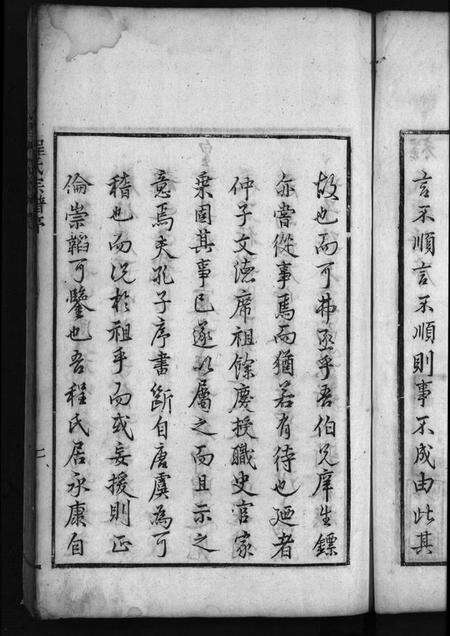 言不順言不順則事不成由此其
故也而可弗亟乎吾伯兄庠生鏢
亦嘗從事焉而猶若有待也廼者
仲子文德席祖餘慶授職史官家
乘固其事已遂以屬之而且示之
意焉夫孔子序書斷自唐虞為可
稽也而況於祖乎而或妄援則正
倫崇韜可鑒也吾程氏居永康自
程氏宗譜序